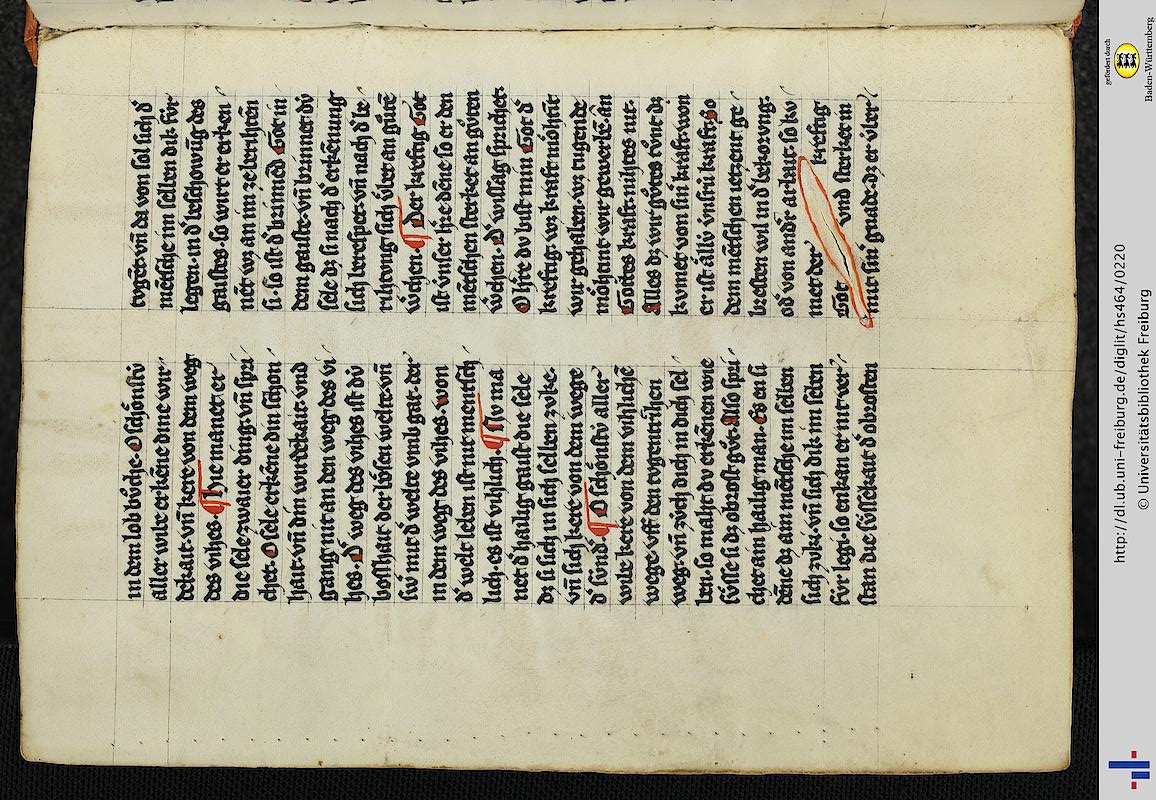 in dem lob bůche. O schōnstv
aller wibe erkēne dine wir
dekait. vn̄ kere von dem weg
des vihes. ¶ Hie manet er
die sele zwaier ding. vn̄ spri
chet. O sele erkēne din schön
hait. vn̄ din wirdekait. vnd
gang nit an den weg des vi
hes. D' weg des vihes ist dú
boshait der bösen welte. vn̄
sú mit d' welte vmb gat. der
in dem weg des vihes. won
d' welt leben ist nit mentsch
lich. es ist vihlich. ¶ Nv ma
net d' hailig gaist die sele
dz si sich in sich selben zvke.
vn̄ sich kere von dem wege
d' sv́nd. ¶ O schōnstv́ aller
wibe kere von dem vihlichē
wege. vff den tvgentrichen
weg. vn̄ zv́ch dich in dich sel
ben. so maht dv erkēnen wie
sv́sse si dz obrost gůt. Also spri
chet ain hailig man. Es en si
dēne dz ain mētsche im selben
sich zvki. vn̄ sich dik im selben
fv́r legi. so enkan er nit ver
stan die sv́ssekait d' obrosten
tvgēt. vn̄ da von sol sich d'
mētsche im selben dik fv́r
legen. in d' beschowūg des
gaistes. so wirt er erken
net wz an im ze berihten
si. so ist d' brinnēd Got in
dem gaiste. vn̄ brinnet dv́
sele dz si nach d' erkēnung
sich berefsper. vn̄ nach d' be
rihtvng sich v́ber an gůte
wͦchen. ¶ Der kreftig Got
ist vnser h're. dēne so er den
mētschen sterket an gůten
wͦchen. D' wissag sprichet.
O h're dv bist min Got d'
kreftig. wz kraft möhtīt
wir gehaben. wz tugende
möhtint wir gewerkē. an
Gottes kraft. nihtes nit.
Alles dz wir gůtes tůnt dz
kvmet von sin kraft. won
er ist állv́ vnsrú kraft. so
dem mētschen ietzent ge
bresten wil in d' bekorvng.
od' von andr' arbait. so kv
met der kreftig
Got vnd sterket in
mit sin' gnade. dz er v́ber
http://dl.ub.uni-freiburg.de/diglit/hs464/0220
© Universitätsbibliothek Freiburg
gefördert durch
Baden-Württemberg